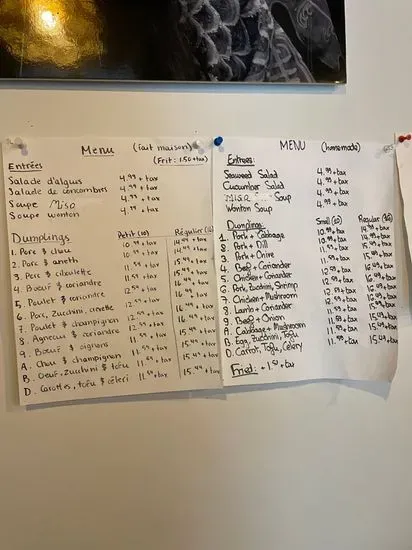 Menu (fait maison)
(Frit: 1.50+tax)
Entrées
Salade d'algues 4.99+tax
Salade de concombres 4.99+tax
Soupe Miso 4.99+tax
Soupe wonton 4.99+tax
Dumplings Petit (10) Régulier
1. Porc & chou 10.99+tax 14.99+tax
2. Porc & aneth 10.99+tax 14.99+tax
3. Porc & ciboulette 11.59+tax 15.49+tax
4. Boeuf & coriandre 12.59+tax 16.49+tax
5. Poulet & coriandre 11.59+tax 15.49+tax
6. Porc, zucchini, crevette 12.59+tax 16.99+tax
7. Poulet & champignon 12.59+tax 16.49+tax
8. Agneau & coriandre
9. Boeuf & oignons
A. Chou & champignon 11.59+tax 15.49+tax
B. Oeuf, zucchini & tofu 11.59+tax 15.49+tax
D. Carottes, tofu & céleri 11.59+tax 15.49+tax
MENU (homemade)
Entrees:
Seaweed Salad 4.99+tax
Cucumber Salad 4.99+tax
Miso Soup 4.99+tax
Wonton Soup 4.99+tax
Dumplings: Small (10) Regular
1. Pork + Cabbage 10.99+tax 14.99+tax
2. Pork + Dill 10.99+tax 14.99+tax
3. Pork + Chive 11.59+tax 15.49+tax
4. Beef + Coriander
5. Chicken + Coriander
6. Pork, Zucchini, Shrimp
7. Chicken + Mushroom
8. Lamb + Coriander
9. Beef + Onion
A. Cabbage + Mushroom
B. Egg, Zucchini, Tofu 11.59+tax 15.49+tax
D. Carrot, Tofu, Celery 11.59+tax 15.49+tax
Fried: +1.50+tax